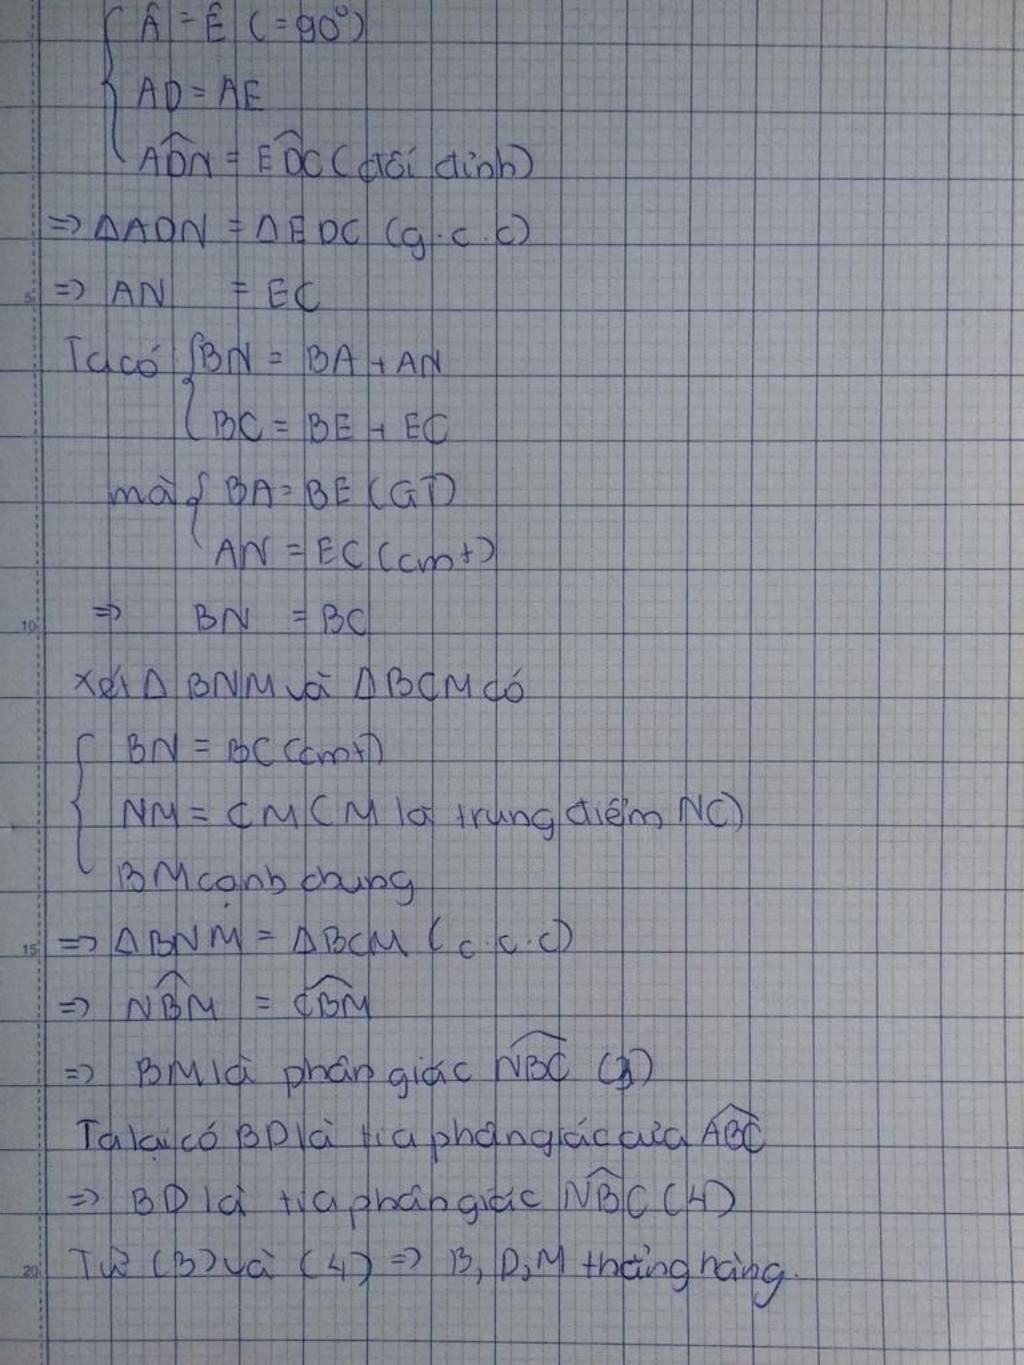 { Â = Ê (= 90°)
AD = AE
ADN = EDC (đối đỉnh)
=> ΔADN = ΔEDC (g.c.c)
5 => AN = EC
Ta có { BN = BA + AN
BC = BE + EC
mà { BA = BE (GT)
AN = EC (cmt)
10 => BN = BC
Xét Δ BNM và ΔBCM có
{ BN = BC (cmt)
NM = CM (M là trung điểm NC)
BM cạnh chung
15 => ΔBNM = ΔBCM (c.c.c)
=> NBM = CBM
=> BM là phân giác NBC (3)
Ta lại có BD là tia phân giác của ABC
=> BD là tia phân giác NBC (4)
20 Từ (3) và (4) => B, D, M thẳng hàng.